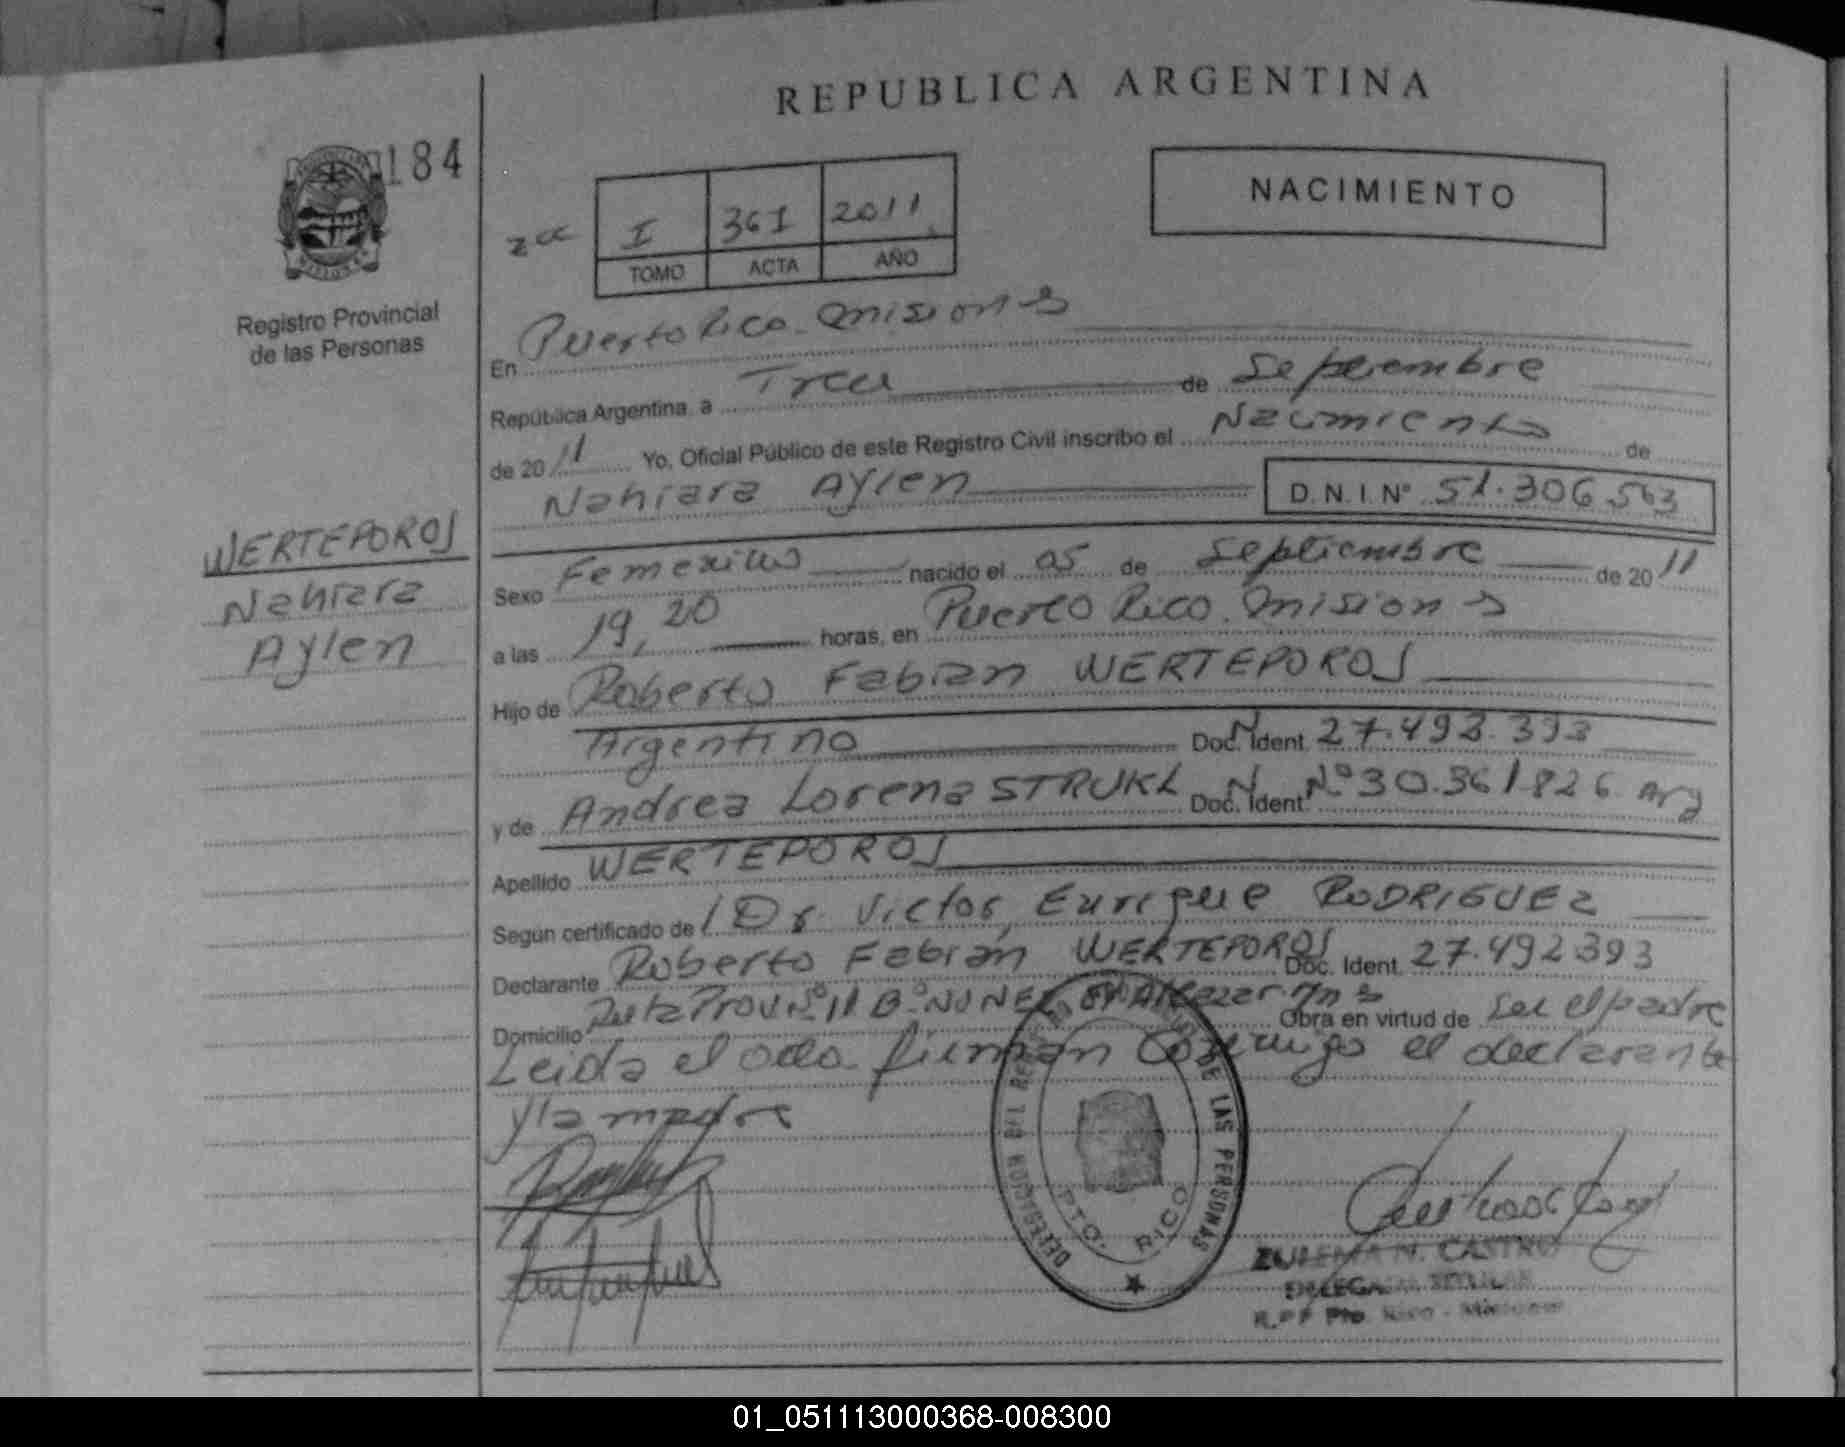 REPUBLICA ARGENTINA
184
NACIMIENTO
I 361 2011
TOMO ACTA AÑO
Registro Provincial
de las Personas
En Puerto Rico. Misiones
República Argentina, a Trece de Septiembre
de 2011 Yo, Oficial Público de este Registro Civil inscribo el Nacimiento de
Nahiara Aylen D.N.I. Nº 51.306.563
WERTEPOROS
Nahiara
Aylen
Sexo Femenino nacido el 05 de Septiembre de 2011
a las 19,20 horas, en Puerto Rico. Misiones
Hijo de Roberto Fabian WERTEPOROS
Argentino Doc. Ident. 27.492.393
y de Andrea Lorena STRUKL Doc. Ident. Nº 30.361.826 Arg
Apellido WERTEPOROS
Según certificado de Dr. Victor Enrique RODRIGUEZ
Declarante Roberto Fabián WERTEPOROS Doc. Ident. 27.492.393
Domicilio Ruta Prov. Nº 11 Bº NUNEZ Obra en virtud de ser el padre
Leida el acta firman conmigo el declarante
y la madre
DELEGACION DEL REGISTRO DE LAS PERSONAS
PTO. RICO
ZULEMA N. CASTRO
DELEGADA TITULAR
R.P.P Pto. Rico - Misiones
01_051113000368-008300